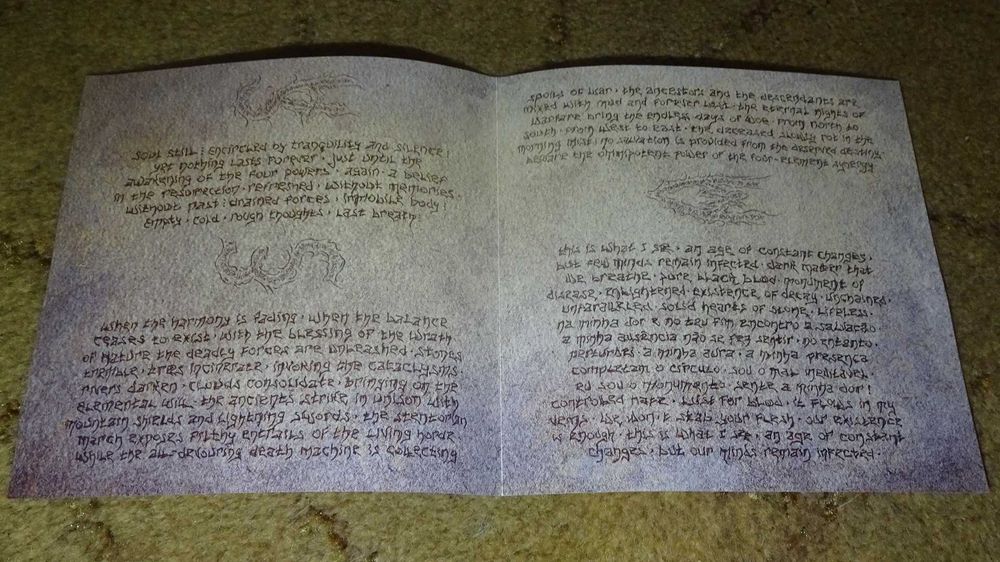 soul still : encircled by tranquility and silence :
yet nothing lasts forever · just until the
awakening of the four powers · again · a belief
in the resurrection · refreshed · without memories ·
without past : drained forces · immobile body :
empty · cold · rough thoughts · last breath :
when the harmony is fading · when the balance
ceases to exist · with the blessing of the wrath
of nature the deadly forces are unleashed · stones
tremble · trees incinerate · invoking the cataclysms
rivers darken · clouds consolidate · bringing on the
elemental will · the ancients strike in unison with
mountain shields and lightning swords · the stentorian
march exposes filthy entrails of the living horde
while the all-devouring death machine is collecting
spoils of war · the ancestors and the descendants are
mixed with mud and forever lost · the eternal nights of
warfare bring the endless days of woe · from north to
south · from west to east · the deceased slowly rot in the
morning mist · no salvation is provided from the deserved destiny
beware the omnipotent power of the four-element synergy
this is what i see · an age of constant changes ·
but few minds remain infected · dark matter that
we breathe · pure black blood · monument of
disease · enlightened existence of decay · unchained ·
unparalleled · solid hearts of stone · lifeless ·
na minha dor e no teu fim encontro a salvação ·
a minha ausência não se fez sentir · no entanto ·
perturbei · a minha aura · a minha presença
completam o círculo · sou o mal inevitável
eu sou o monumento · sente a minha dor !
controlled hate · lust for blood · it flows in my
veins · we don't stab your flesh · our existence
is enough · this is what i see · an age of constant
changes · but our minds remain infected ·